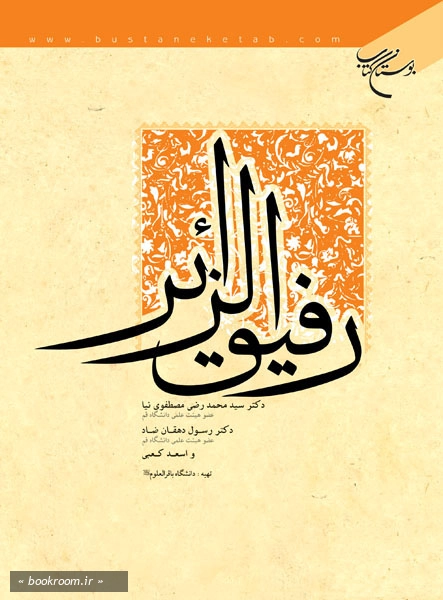 www.bustaneketab.com
بوستان کتاب
رفیق الزائر
دکتر سید محمد رضی مصطفوی نیا
عضو هیئت علمی دانشگاه قم
دکتر رسول دهقان ضاد
عضو هیئت علمی دانشگاه قم
و اسعد کعبی
تهیه : دانشگاه باقرالعلوم
« bookroom.ir »